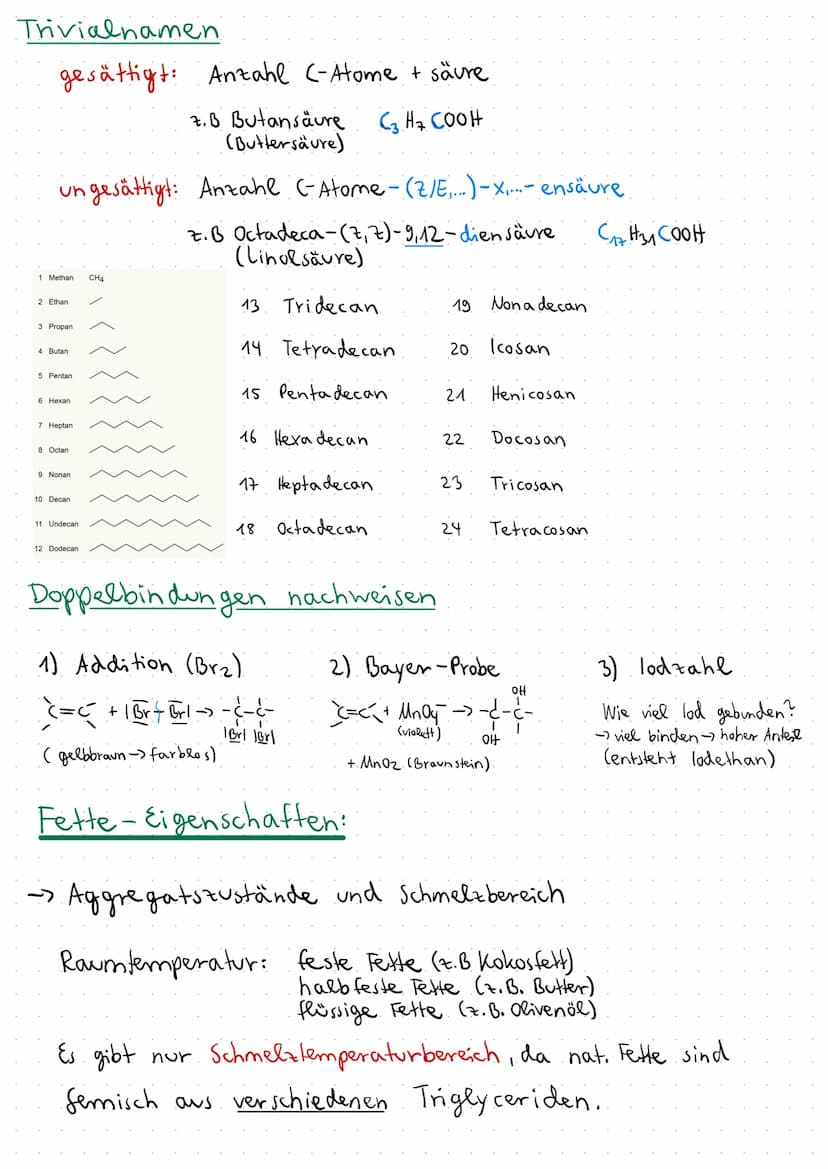 Trivialnamen
gesättigt: Anzahl C-Atome + säure
z.B Butansäure C₃H₇COOH
(Buttersäure)
ungesättigt: Anzahl C-Atome-(Z/E,...)-x,...-ensäure
z.B Octadeca-(Z,Z)-9,12-diensäure C₁₇H₃₁COOH
(Linolsäure)
1 Methan CH₄
2 Ethan
3 Propan
4 Butan
5 Pentan
6 Hexan
7 Heptan
8 Octan
9 Nonan
10 Decan
11 Undecan
12 Dodecan
13 Tridecan
14 Tetradecan
15 Pentadecan
16 Hexadecan
17 Heptadecan
18 Octadecan
19 Nonadecan
20 Icosan
21 Henicosan
22 Docosan
23 Tricosan
24 Tetracosan
Doppelbindungen nachweisen
1) Addition (Br₂)
C=C + |Br-Br| → -C-C-
|Br| |Br|
(gelbbraun → farblos)
2) Bayer-Probe
OH
C=C + MnO₄⁻ → -C-C-
(violett) OH
+ MnO₂ (Braunstein)
3) Iodzahl
Wie viel Iod gebunden?
→ viel binden → hoher Anteil
(entsteht Iodethan)
Fette-Eigenschaften:
→ Aggregatszustände und Schmelzbereich
Raumtemperatur: feste Fette (z.B Kokosfett)
halbfeste Fette (z.B. Butter)
flüssige Fette (z.B. Olivenöl)
Es gibt nur Schmelztemperaturbereich, da nat. Fette sind
Gemisch aus verschiedenen Triglyceriden.